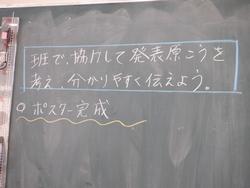 班で、協力して発表原こうを
考え、分かりやすく伝えよう。
○ポスター完成